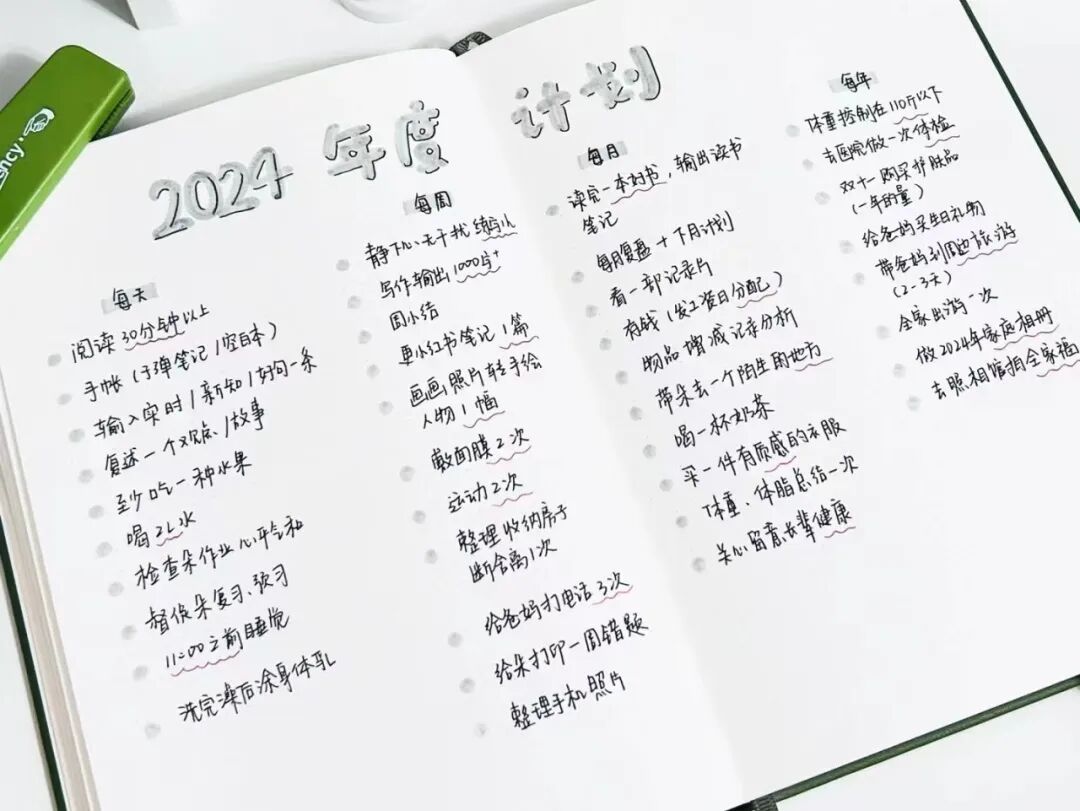 2024 年度 计划
每天
阅读 30分钟以上
手帐 (子弹笔记 / 空白本)
输入实时 / 新知 / 好句一条
复述一个观念 / 故事
至少吃一种水果
喝 2L 水
检查朵作业心平气和
督促朵复习、预习
11:00之前睡觉
洗完澡后涂身体乳
每周
静下心、无干扰 练字1h
写作输出 1000字+
周小结
更小红书笔记 1篇
画画照片转手绘
人物 1 幅
敷面膜 2 次
运动 2次
整理收纳房子
断舍离 1次
给爸妈打电话 3次
给朵打印一周错题
整理手机照片
每月
读完一本好书，输出读书
笔记
每月复盘 + 下月计划
看一部记录片
存钱 (发工资日分配)
物品增减记录分析
带朵去一个陌生的地方
喝一杯奶茶
买一件有质感的衣服
体重、体脂总结一次
关心留意长辈健康
每年
体重控制在110斤以下
去医院做一次体检
双十一购买护肤品
(一年的量)
给爸妈买生日礼物
带爸妈到周边旅游
(2-3天)
全家出游一次
做2024年家庭相册
去照相馆拍全家福